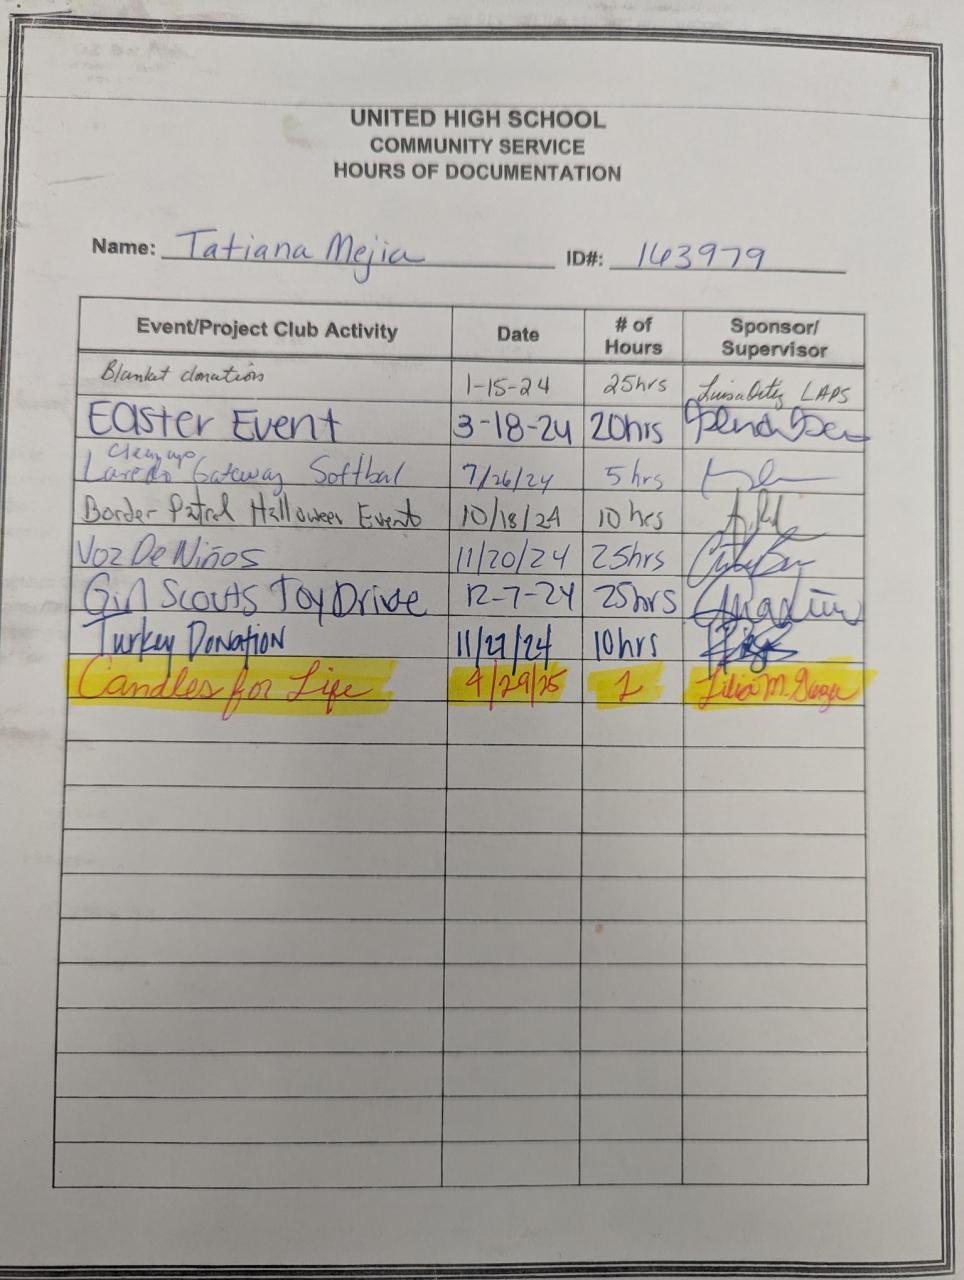 UNITED HIGH SCHOOL
COMMUNITY SERVICE
HOURS OF DOCUMENTATION
Name: Tatiana Mejia ID#: 143979
Event/Project Club Activity Date # of Hours Sponsor/ Supervisor
Blanket donations 1-15-24 25hrs LAPS
Easter Event 3-18-24 20hrs
Clean up
Laredo Gateway Softbal 7/26/24 5 hrs
Border Patrol Halloween Event 10/18/24 10 hrs
Voz De Niños 11/20/24 25hrs
Girl Scouts Toy Drive 12-7-24 25hrs
Turkey Donation 11/27/24 10hrs
Candles for Life 4/29/25 1 Lilia M.